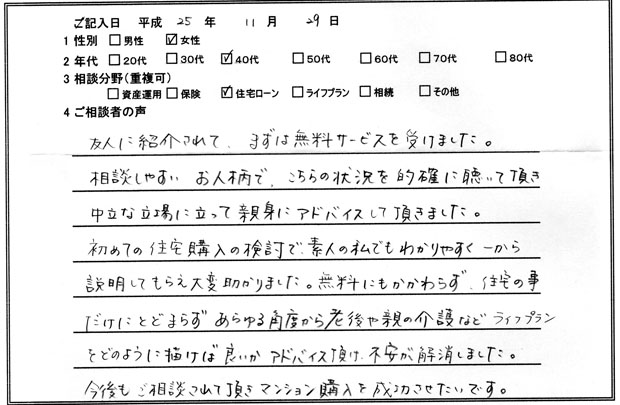 ご記入日 平成 25 年 11 月 29 日
1 性別 □男性 ☑女性
2 年代 □20代 □30代 ☑40代 □50代 □60代 □70代 □80代
3 相談分野(重複可)
□資産運用 □保険 ☑住宅ローン □ライフプラン □相続 □その他
4 ご相談者の声
友人に紹介されて、まずは無料サービスを受けました。
相談しやすい お人柄で、こちらの状況を的確に聴いて頂き
中立な立場に立って親身にアドバイスして頂きました。
初めての住宅購入の検討で、素人の私でもわかりやすく一から
説明してもらえ大変助かりました。無料にもかかわらず、住宅の事
だけにとどまらず あらゆる角度から老後や親の介護など ライフプラン
をどのように描けば良いか アドバイス頂け、不安が解消しました。
今後も ご相談されて頂き マンション購入を成功させたいです。